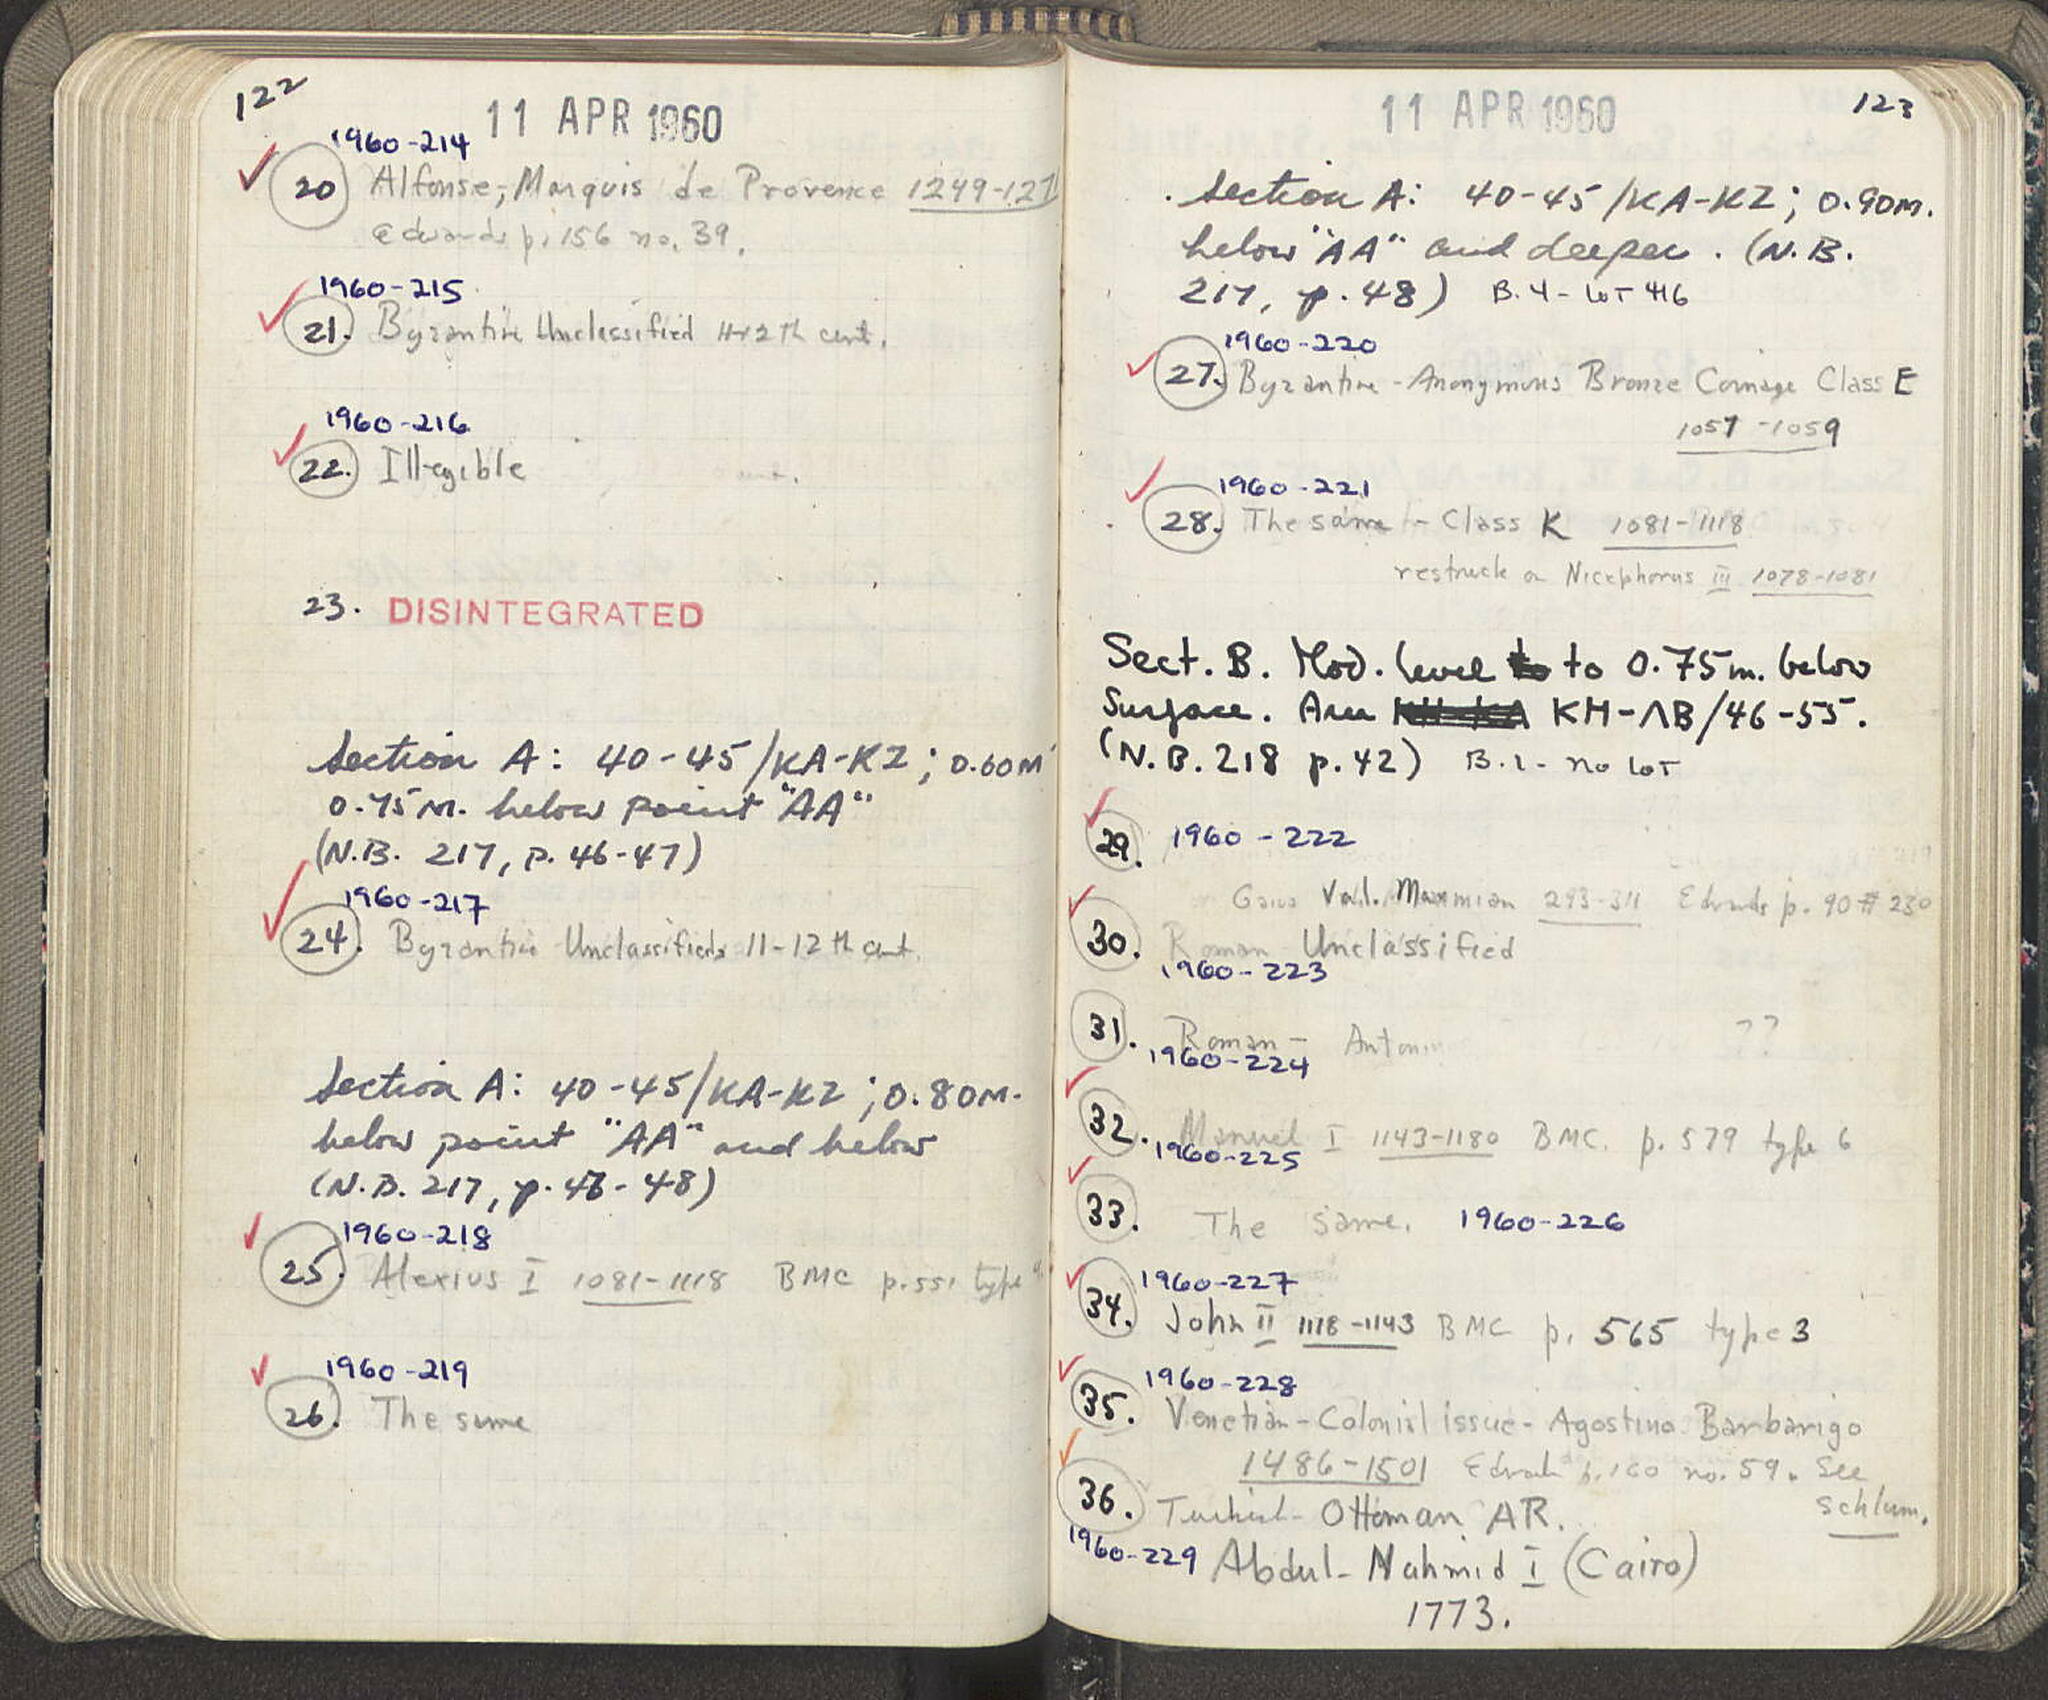 122
11 APR 1960
1960-214
20 Alfonse, Marquis de Provence 1249-127
Edwards p. 156 no. 39.
1960-215
21. Byzantine Unclassified 11-12th cent.
1960-216
22. Illegible
23. DISINTEGRATED
Section A: 40-45/KA-KZ; 0.60M
0.75M. below point "AA"
(N.B. 217, p. 46-47)
1960-217
24. Byzantine Unclassified 11-12th cent.
Section A: 40-45/KA-KZ; 0.80M.
below point "AA" and below
(N.B. 217, p. 48)
1960-218
25. Alexius I 1081-1118 BMC p. 551 type
1960-219
26. The same
123
11 APR 1960
Section A: 40-45/KA-KZ; 0.90M.
below "AA" and deeper. (N.B.
217, p. 48) B.4- LOT 416
1960-220
27. Byzantine - Anonymous Bronze Coinage Class E
1057-1059
1960-221
28. The same - Class K 1081-1118
restruck on Nicephorus III 1078-1081
Sect. B. Mod. level to to 0.75m. below
Surface. Area KH-ΛB/46-55.
(N.B. 218 p. 42) B.1- no LOT
29. 1960-222
Gaius Val. Maxmian 293-311 Edwards p. 90 # 230
30. Roman Unclassified
1960-223
31. Roman - Antonin ??
1960-224
32. Manuel I 1143-1180 BMC. p. 579 type 6
1960-225
33. The same. 1960-226
1960-227
34. John II 1118-1143 BMC p. 565 type 3
1960-228
35. Venetian-Colonial issue- Agostino Barbarigo
1486-1501 Edwards p. 160 no. 59. See
Schlum.
36. Turkish- Ottoman AR.
1960-229 Abdul- Nahmid I (Cairo)
1773.